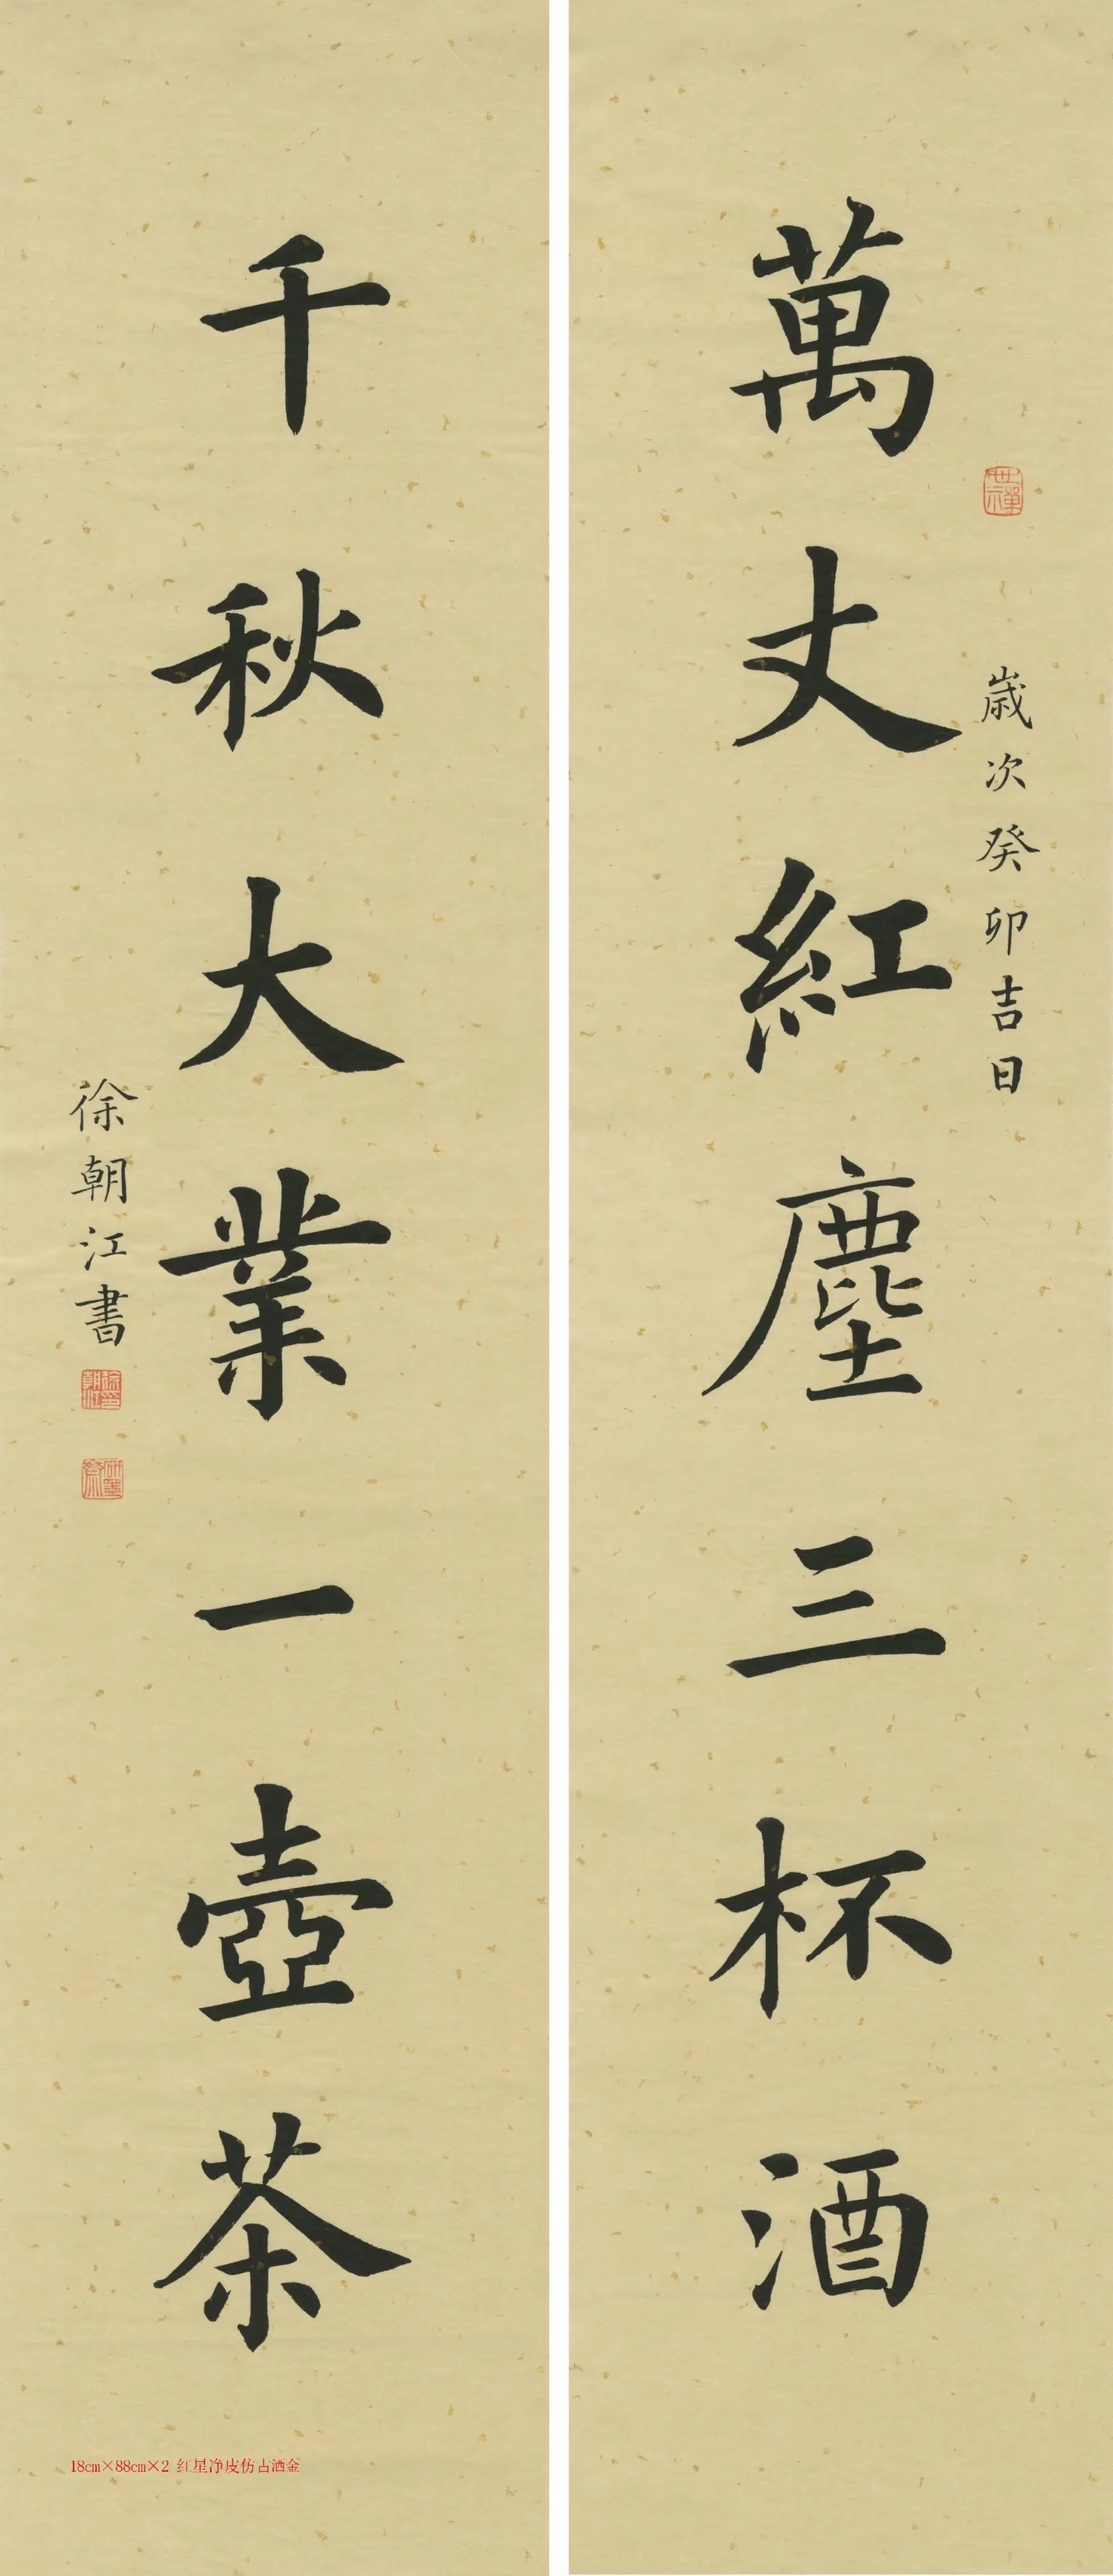 歲次癸卯吉日
萬丈紅塵三杯酒
千秋大業一壺茶
徐朝江書
18cm×88cm×2 红星净皮仿古洒金